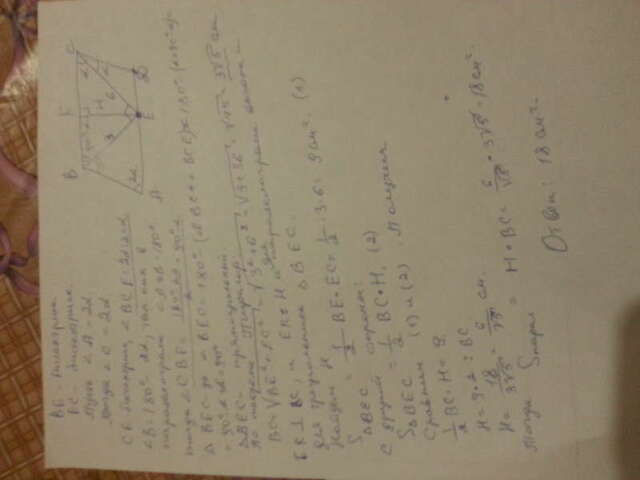 BE - биссектриса
EC - биссектриса.
Пусть ∠A = 2α
тогда ∠C = 2α
CE - биссектриса, ∠BCE = 2α:2 = α
∠B = 180° - 2α, так как в
параллелограмме ∠A + ∠B = 180°
тогда ∠CBE = (180° - 2α)/2 = 90° - α
Δ BEC ∠BEC = 180° - (∠BCE + ∠
= 90°
Δ BEC - прямоугольный
По теореме Пифагора
BC = √BE² + EC² = √3² + 6² = √9 + 36 = √45 = 3√5 см
EK ⊥ BC, и EK = H - параллелограмма
для треугольника Δ BEC.
Найдем H
S ΔBEC = 1/2 BE · EC = 1/2 · 3 · 6 = 9 см². (1)
С другой стороны:
S ΔBEC = 1/2 BC · H. (2)
Сравним (1) и (2) Получим
1/2 BC · H = 9.
H = 9 · 2 : BC
H = 18/3√5 = 6/√5 см.
Тогда Sпарал = H · BC = 6/√5 · 3√5 = 18 см².
Ответ: 18 см².
B
K
C
A
E
D
3
H
6
α
2α